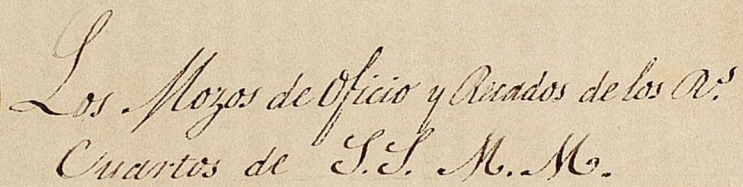 Los Mozos de Oficio y Recados de los R.ˢ
Cuartos de S.S. M.M.